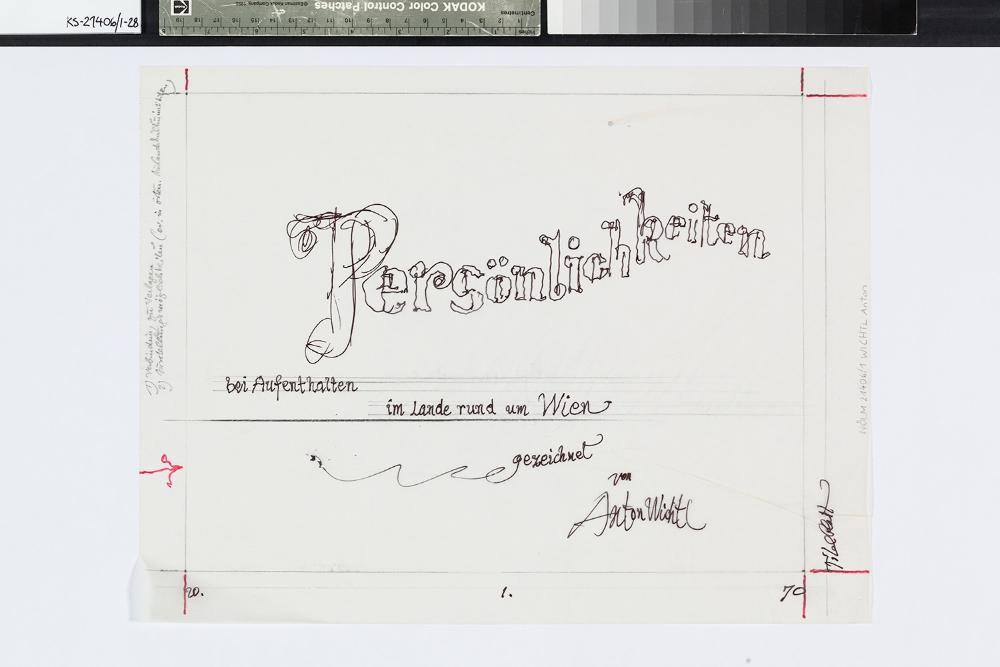 KS-27406/1-28
KODAK Color Control Patches
©Eastman Kodak Company
Centimetres
Inches
Persönlichkeiten
bei Aufenthalten
im Lande rund um Wien
gezeichnet
von
Anton Wichtl
20.
1.
70
Titelblatt
WICHTL Anton